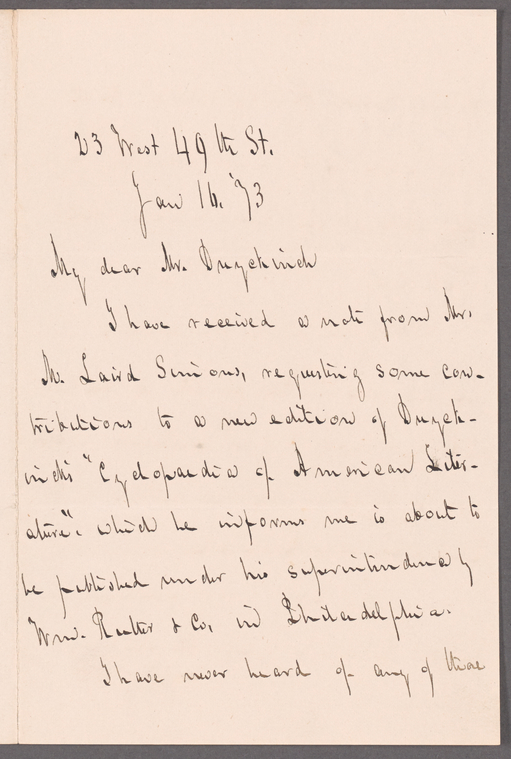 23 West 49th St.
Jan 16. '73
My dear Mr. Duyckinck
I have received a note from Mr.
M. Laird Simons, requesting some con-
tributions to a new edition of Duyck-
inck's "Cyclopaedia of American Liter-
ature", which he informs me is about to
be published under his superintendence by
Wm. Rutter & Co, in Philadelphia.
I have never heard of any of these